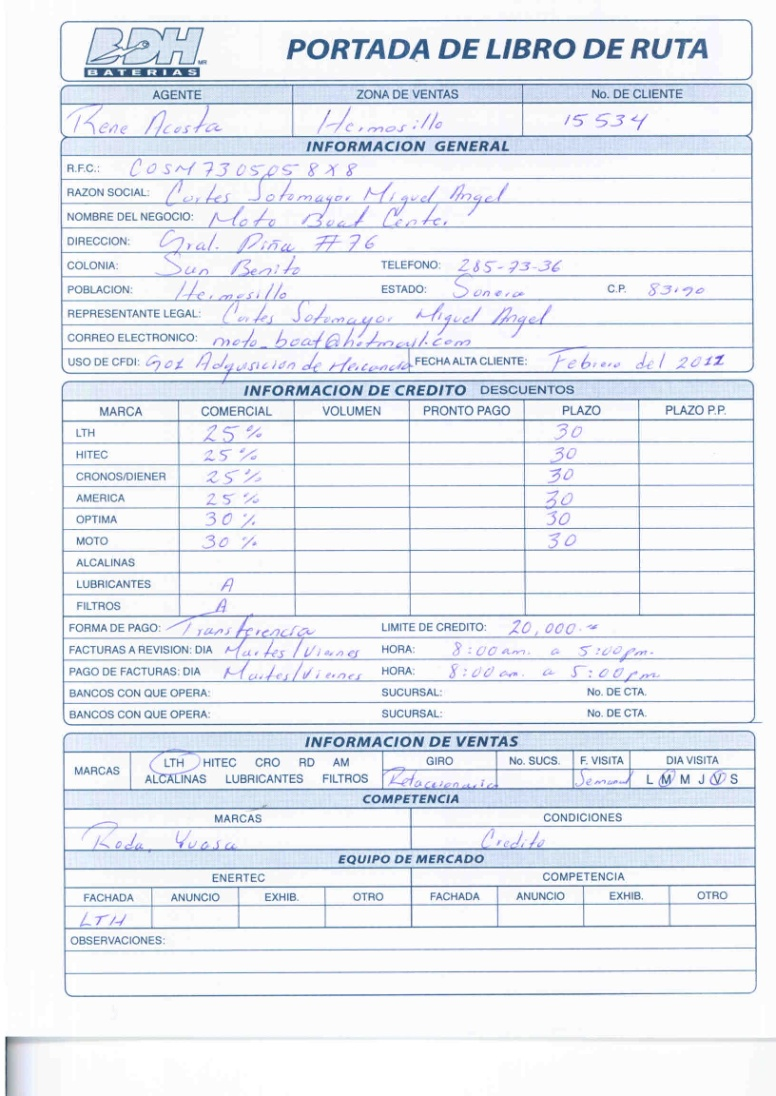 BDH MR
BATERIAS
PORTADA DE LIBRO DE RUTA
AGENTE ZONA DE VENTAS No. DE CLIENTE
Rene Acosta Hermosillo 15534
INFORMACION GENERAL
R.F.C.: COSM7305058X8
RAZON SOCIAL: Cortes Sotomayor Miguel Angel
NOMBRE DEL NEGOCIO: Moto Boat Center
DIRECCION: Gral. Piña #76
COLONIA: San Benito TELEFONO: 285-73-36
POBLACION: Hermosillo ESTADO: Sonora C.P. 83190
REPRESENTANTE LEGAL: Cortes Sotomayor Miguel Angel
CORREO ELECTRONICO: moto_boat@hotmail.com
USO DE CFDI: G01 Adquisicion de Mercancia FECHA ALTA CLIENTE: Febrero del 2011
INFORMACION DE CREDITO DESCUENTOS
MARCA COMERCIAL VOLUMEN PRONTO PAGO PLAZO PLAZO P.P.
LTH 25% 30
HITEC 25% 30
CRONOS/DIENER 25% 30
AMERICA 25% 30
OPTIMA 30% 30
MOTO 30% 30
ALCALINAS
LUBRICANTES A
FILTROS A
FORMA DE PAGO: Transferencia LIMITE DE CREDITO: 20,000.-
FACTURAS A REVISION: DIA Martes/Viernes HORA: 8:00am. a 5:00pm.
PAGO DE FACTURAS: DIA Martes/Viernes HORA: 8:00am. a 5:00pm.
BANCOS CON QUE OPERA: SUCURSAL: No. DE CTA.
BANCOS CON QUE OPERA: SUCURSAL: No. DE CTA.
INFORMACION DE VENTAS
MARCAS LTH HITEC CRO RD AM GIRO No. SUCS. F. VISITA DIA VISITA
ALCALINAS LUBRICANTES FILTROS Refaccionaria Semanal L M M J V S
COMPETENCIA
MARCAS CONDICIONES
Roda, Yuasa Credito
EQUIPO DE MERCADO
ENERTEC COMPETENCIA
FACHADA ANUNCIO EXHIB. OTRO FACHADA ANUNCIO EXHIB. OTRO
LTH
OBSERVACIONES: